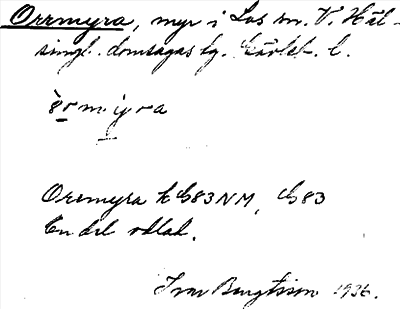 Orrmyra, myr i Los sn. V. Häl-
singl. domsagas tg. Gävleb. l.
òrmỳra
Orrmyra k G83NM, G83
En del odlad.
Ivar Bengtsson 1936.